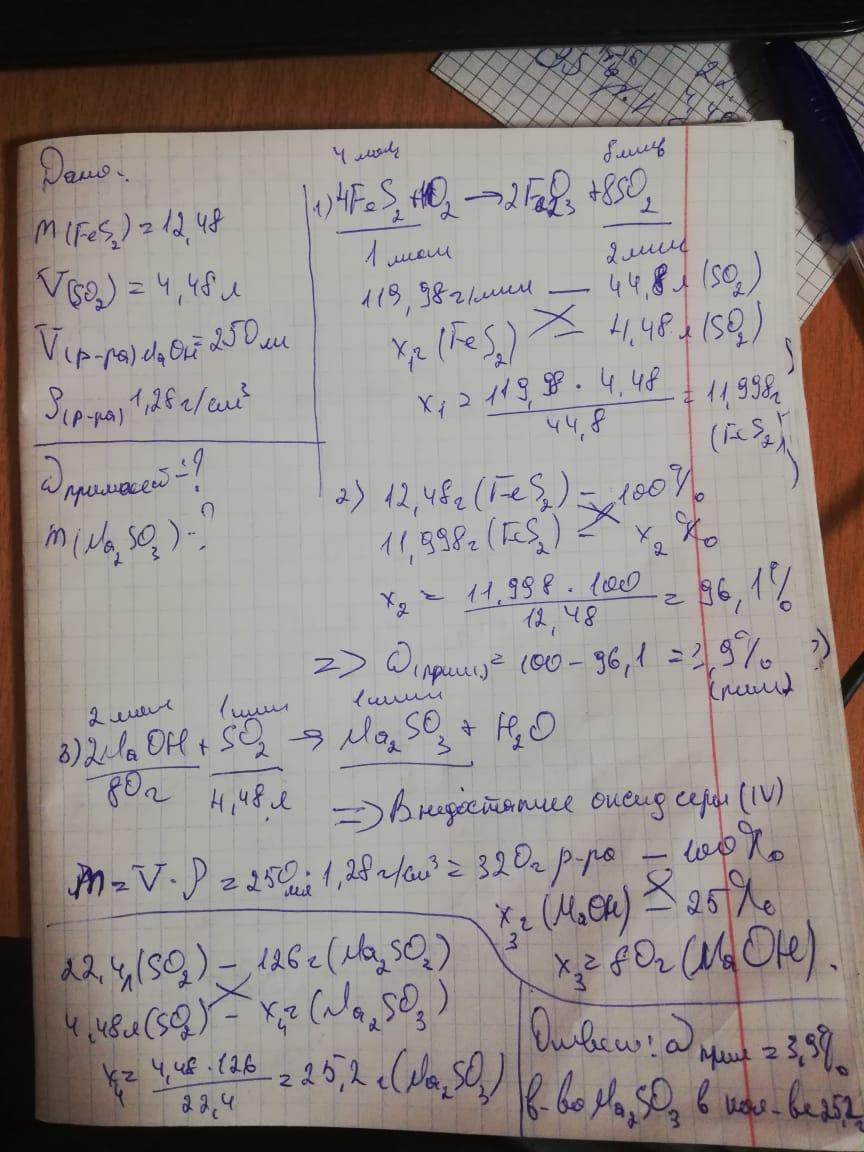 Дано:
m(FeS2) = 12,48
V(SO2) = 4,48 л
V(р-ра) NaOH = 250 мл
ρ(р-ра) 1,28 г/см³
ω примесей - ?
m(Na2SO3) - ?
4 моль 8 моль
1) 4FeS2 + 11O2 → 2Fe2O3 + 8SO2
1 моль 2 моль
119,98 г/моль — 44,8 л (SO2)
x1 г (FeS2) — 4,48 л (SO2)
x1 = 119,98 · 4,48 / 44,8 = 11,998 г (FeS2)
2) 12,48 г (FeS2) — 100%
11,998 г (FeS2) — x2 %
x2 = 11,998 · 100 / 12,48 = 96,1%
=> ω(прим.) = 100 - 96,1 = 3,9%
(прим)
2 моль 1 моль 1 моль
3) 2NaOH + SO2 → Na2SO3 + H2O
80 г 4,48 л
=> В недостатке оксид серы (IV)
m = V · ρ = 250 мл · 1,28 г/см³ = 320 г р-ра — 100%
x3 г (NaOH) — 25%
x3 = 80 г (NaOH).
22,4 л (SO2) — 126 г (Na2SO2)
4,48 л (SO2) — x4 г (Na2SO3)
x4 = 4,48 · 126 / 22,4 = 25,2 г (Na2SO3)
Ответ: ω прим = 3,9%
в-во Na2SO3 в кол-ве 25,2 г